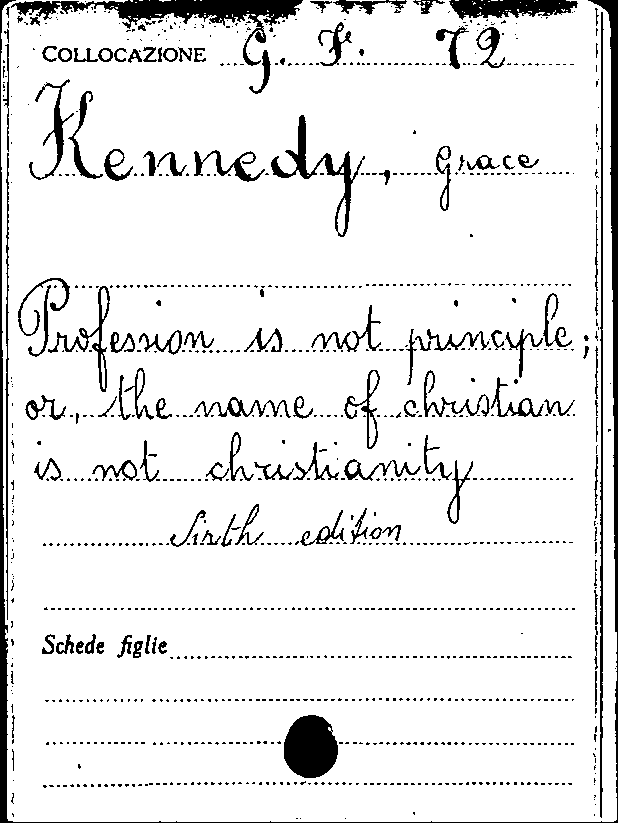 COLLOCAZIONE G. F. 72
Kennedy, Grace
Profession is not principle;
or, the name of christian
is not christianity
Sixth edition
Schede figlie